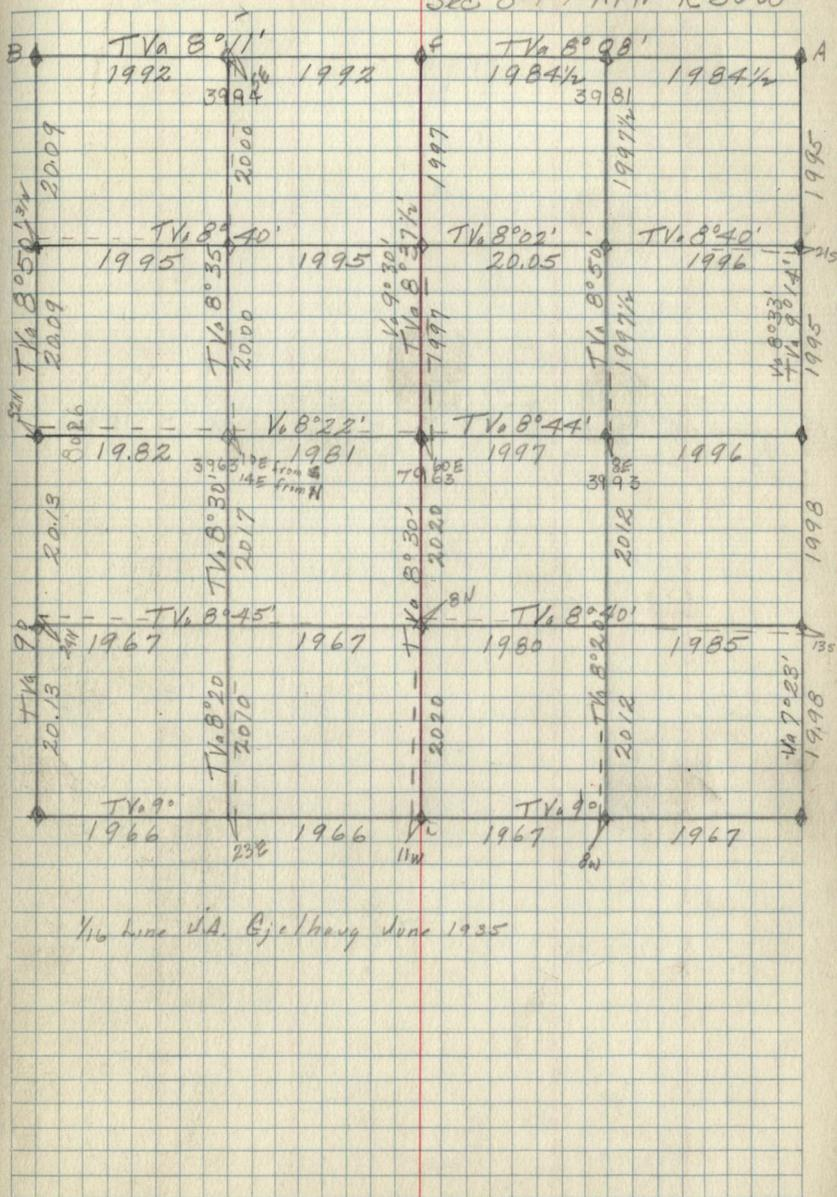 B TVa 8°11' TVa 8°08' A
1992 1992 1984½ 1984½
3994 3981
20.09 2000 1997 1997½ 1995
TVa 8°40' TVa 8°02' TVa 8°40'
1995 1995 20.05 1996 21S
TVa 8°50' TVa 8°35' Va 9°30' TVa 8°37½' TVa 8°50' Va 8°33' TVa 9°14'
20.09 20.00 1997 1997½ 1995
52N
Va 8°22' TVa 8°44'
8026 19.82 1981 1997 1996
3963 19E from S 7963 60E 3993 8E
14E from N
20.13 TVa 8°30' 2017 TVa 8°30' 2020 2012 1998
8N
TVa 8°45' TVa 8°40'
1967 1967 1980 1985 13S
TVa 9° 20.13 TVa 8°20 2070 2020 TVa 8°20' 2012 Va 7°23' 19.98
TVa 9° TVa 9°
1966 1966 1967 1967
23E 11W 8W
1/16 Line J.A. Gjelhaug June 1935